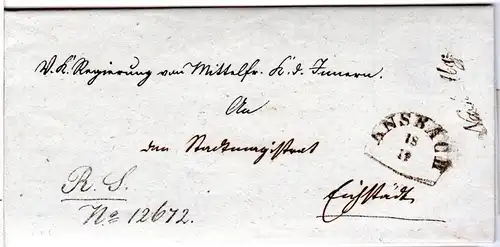 V. K. Regierung von Mittelfr. K. d. Innern.
An
den Stadtmagistrat
Eichstädt
R. S.
No 12672.
ANSBACH
18